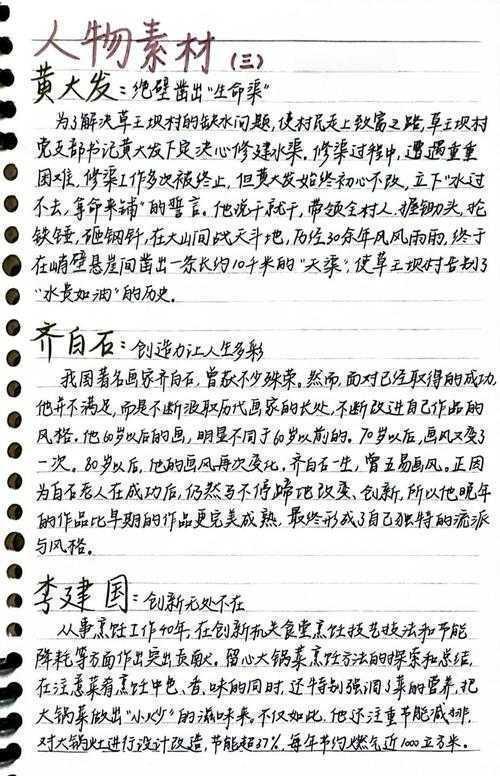 人物素材(三)
黄大发：绝壁凿出“生命渠”
为了解决草王坝村的缺水问题，使村民走上致富之路，草王坝村
党支部书记黄大发下定决心修建水渠。修渠过程中，遭遇重重
困难，修渠工作多次被终止，但黄大发始终初心不改，立下“水过
不去，拿命来铺”的誓言。他说干就干，带领全村人，握锄头，抡
铁锤，砸钢钎，在大山间战天斗地，历经30余年风风雨雨，终于
在峭壁悬崖间凿出一条长约10千米的“天渠”，使草王坝村告别了
“水贵如油”的历史。
齐白石：创造力让人生多彩
我国著名画家齐白石，曾获不少殊荣。然而，面对已经取得的成功，
他并不满足，而是不断汲取历代画家的长处，不断改进自己作品的
风格。他60岁以后的画，明显不同于60岁以前的。70岁以后，画风又变了
一次。80岁以后，他的画风再次变化。齐白石一生，曾五易画风。正因
为白石老人在成功后，仍然马不停蹄地改变、创新，所以他晚年
的作品比早期的作品更完美成熟，最终形成了自己独特的流派
与风格。
李建国：创新无处不在
从事烹饪工作40年，在创新机关食堂烹饪技艺技法和节能
降耗等方面作出突出贡献。留心大锅菜烹饪方法的探索和总结，
在注意菜肴烹饪中色、香、味的同时，还特别强调了菜的营养，把
大锅菜做出“小炒”的滋味来。不仅如此，他还注重节能减排，
对大锅灶进行设计改造，节能超37%，每年节约燃气近1000立方米。